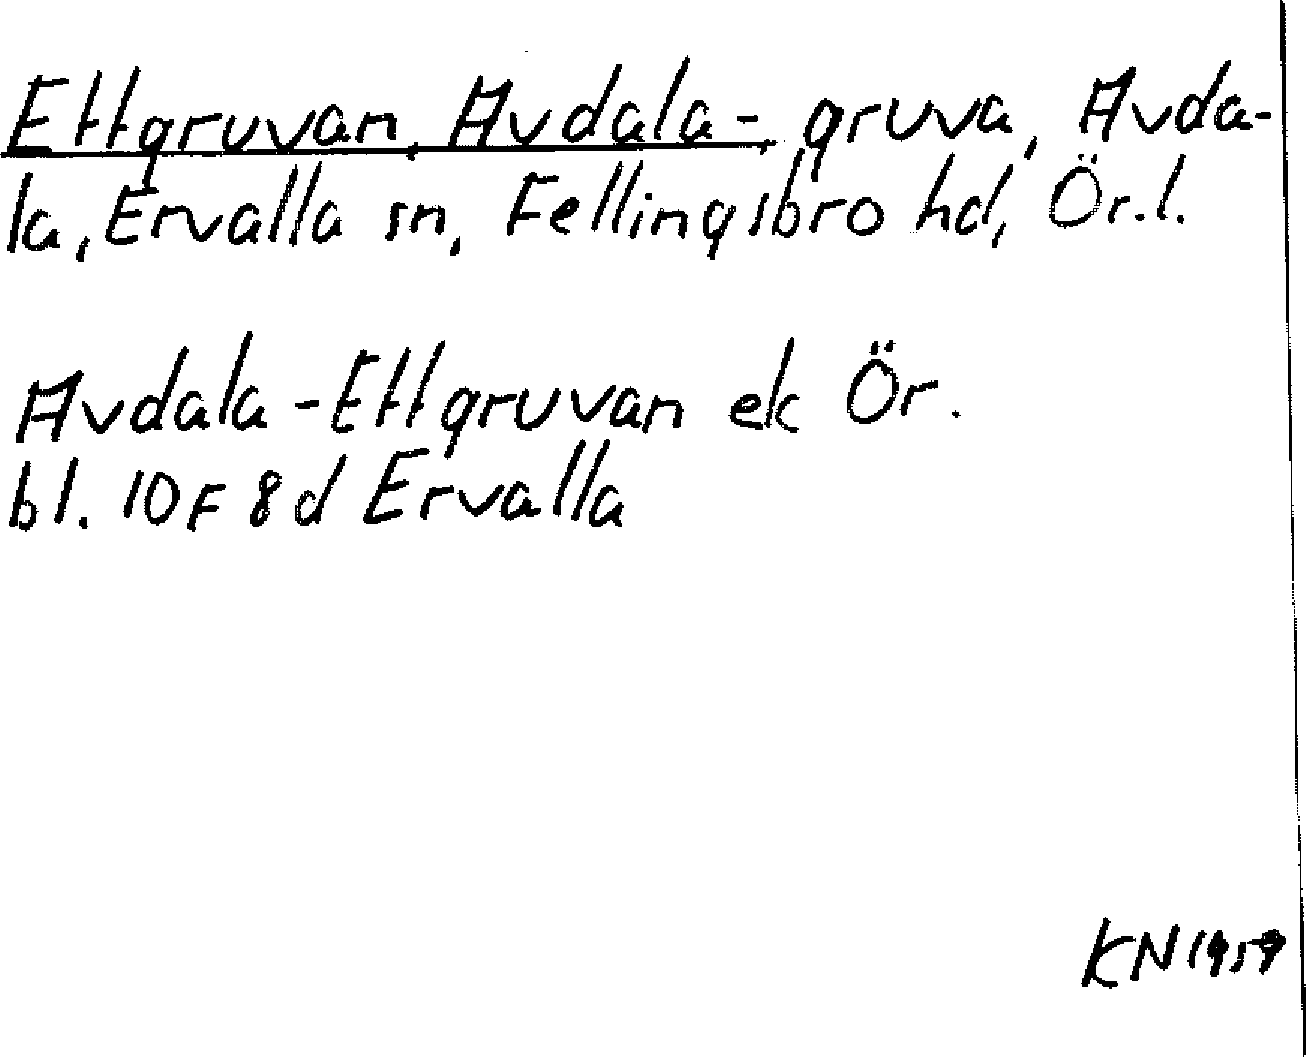 Ettgruvan, Avdala-, gruva, Avda-
la, Ervalla sn, Fellingsbro hd, Ör.l.
Avdala-Ettgruvan ek Ör.
bl. 10F 8d Ervalla
KN 1959